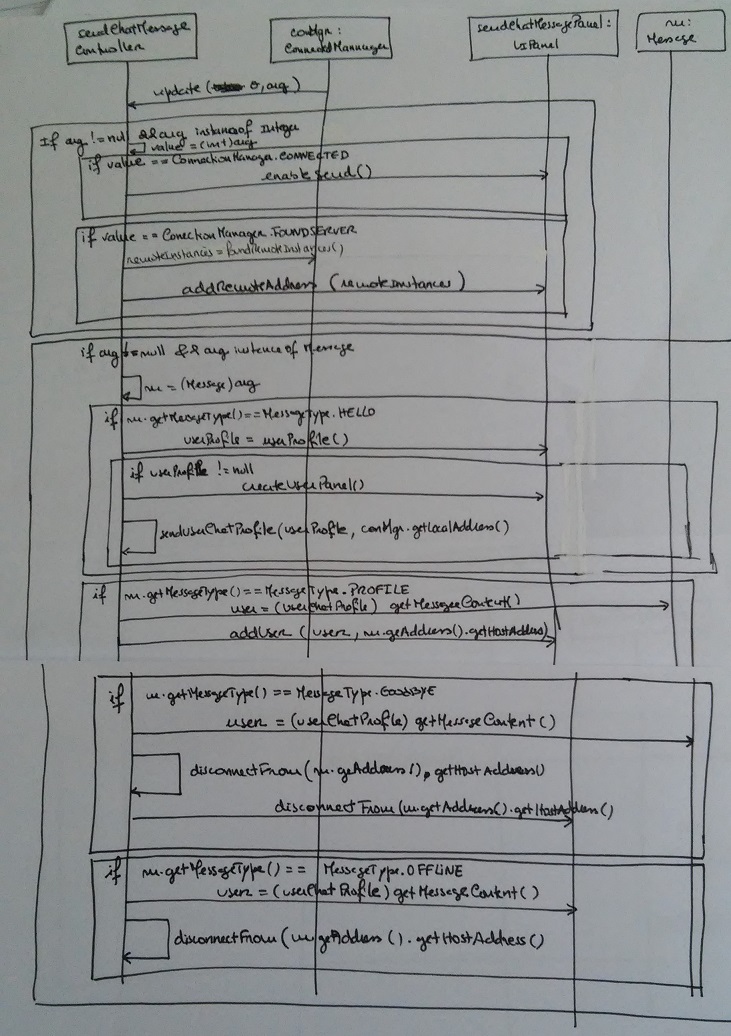 sendChatMessage
Controller
conMgr:
ConnectedMannager
sendChatMessagePanel:
UIPanel
m:
Message
update (o, arg)
If arg != null && arg instanceof Integer
value = (int) arg
if value == ConnectionManager.CONNECTED
enable send()
if value == ConectionManager.FOUNDSERVER
remoteInstances = findRemoteInstances()
addRemoteAddress (remoteInstances)
if arg != null && arg instence of Message
m = (Message) arg
if m.getMessageType() == MessageType.HELLO
userProfile = userProfile()
if userProfile != null
createUserPanel()
sendUserChatProfile(userProfile, conMgr.getLocalAddress()
if m.getMessageType() == MessageType.PROFILE
user = (userChatProfile) getMessageContent()
addUser (user, m.geAddress().getHostAddress)
if m.getMessageType() == MessageType.GOODBYE
user = (userChatProfile) getMessageContent()
disconnectFrom (m.geAddress(), getHostAddress()
disconnectFrom (m.getAddress().getHostAddress()
if m.getMessageType() == MessageType.OFFLINE
user = (userChatProfile) getMessageContent()
disconnectFrom (m.getAddress().getHostAddress()